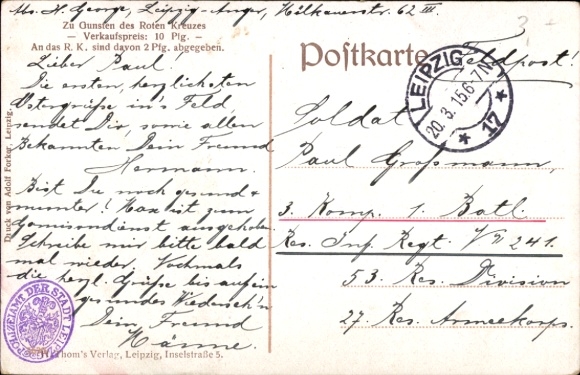 Abs. H. George, Leipzig-Anger, Wölkauerstr. 62 III.
Zu Gunsten des Roten Kreuzes
– Verkaufspreis: 10 Pfg. –
An das R. K. sind davon 2 Pfg. abgegeben.
Postkarte
Feldpost!
LEIPZIG
20.3.15.6-7N
* 17 *
Lieber Paul!
Die ersten, herzlichsten
Ostergrüße in's Feld
sendet Dir, sowie allen
Bekannten Dein Freund
Hermann.
Bist Du noch gesund &
munter! Max ist zum
Garnisondienst ausgehoben.
Schreibe mir bitte bald
mal wieder. Nochmals
die herzl. Grüße bis auf ein
gesundes Wiederseh'n
Dein Freund
Soldat
Paul Großmann,
3. Komp. 1. Batl.
Res. Inf. Regt. No 241.
53. Res. Division
27. Res. Armeekorps.
Druck von Adolf Forkar, Leipzig.
POLIZEIAMT DER STADT LEIPZIG
Thom's Verlag, Leipzig, Inselstraße 5.